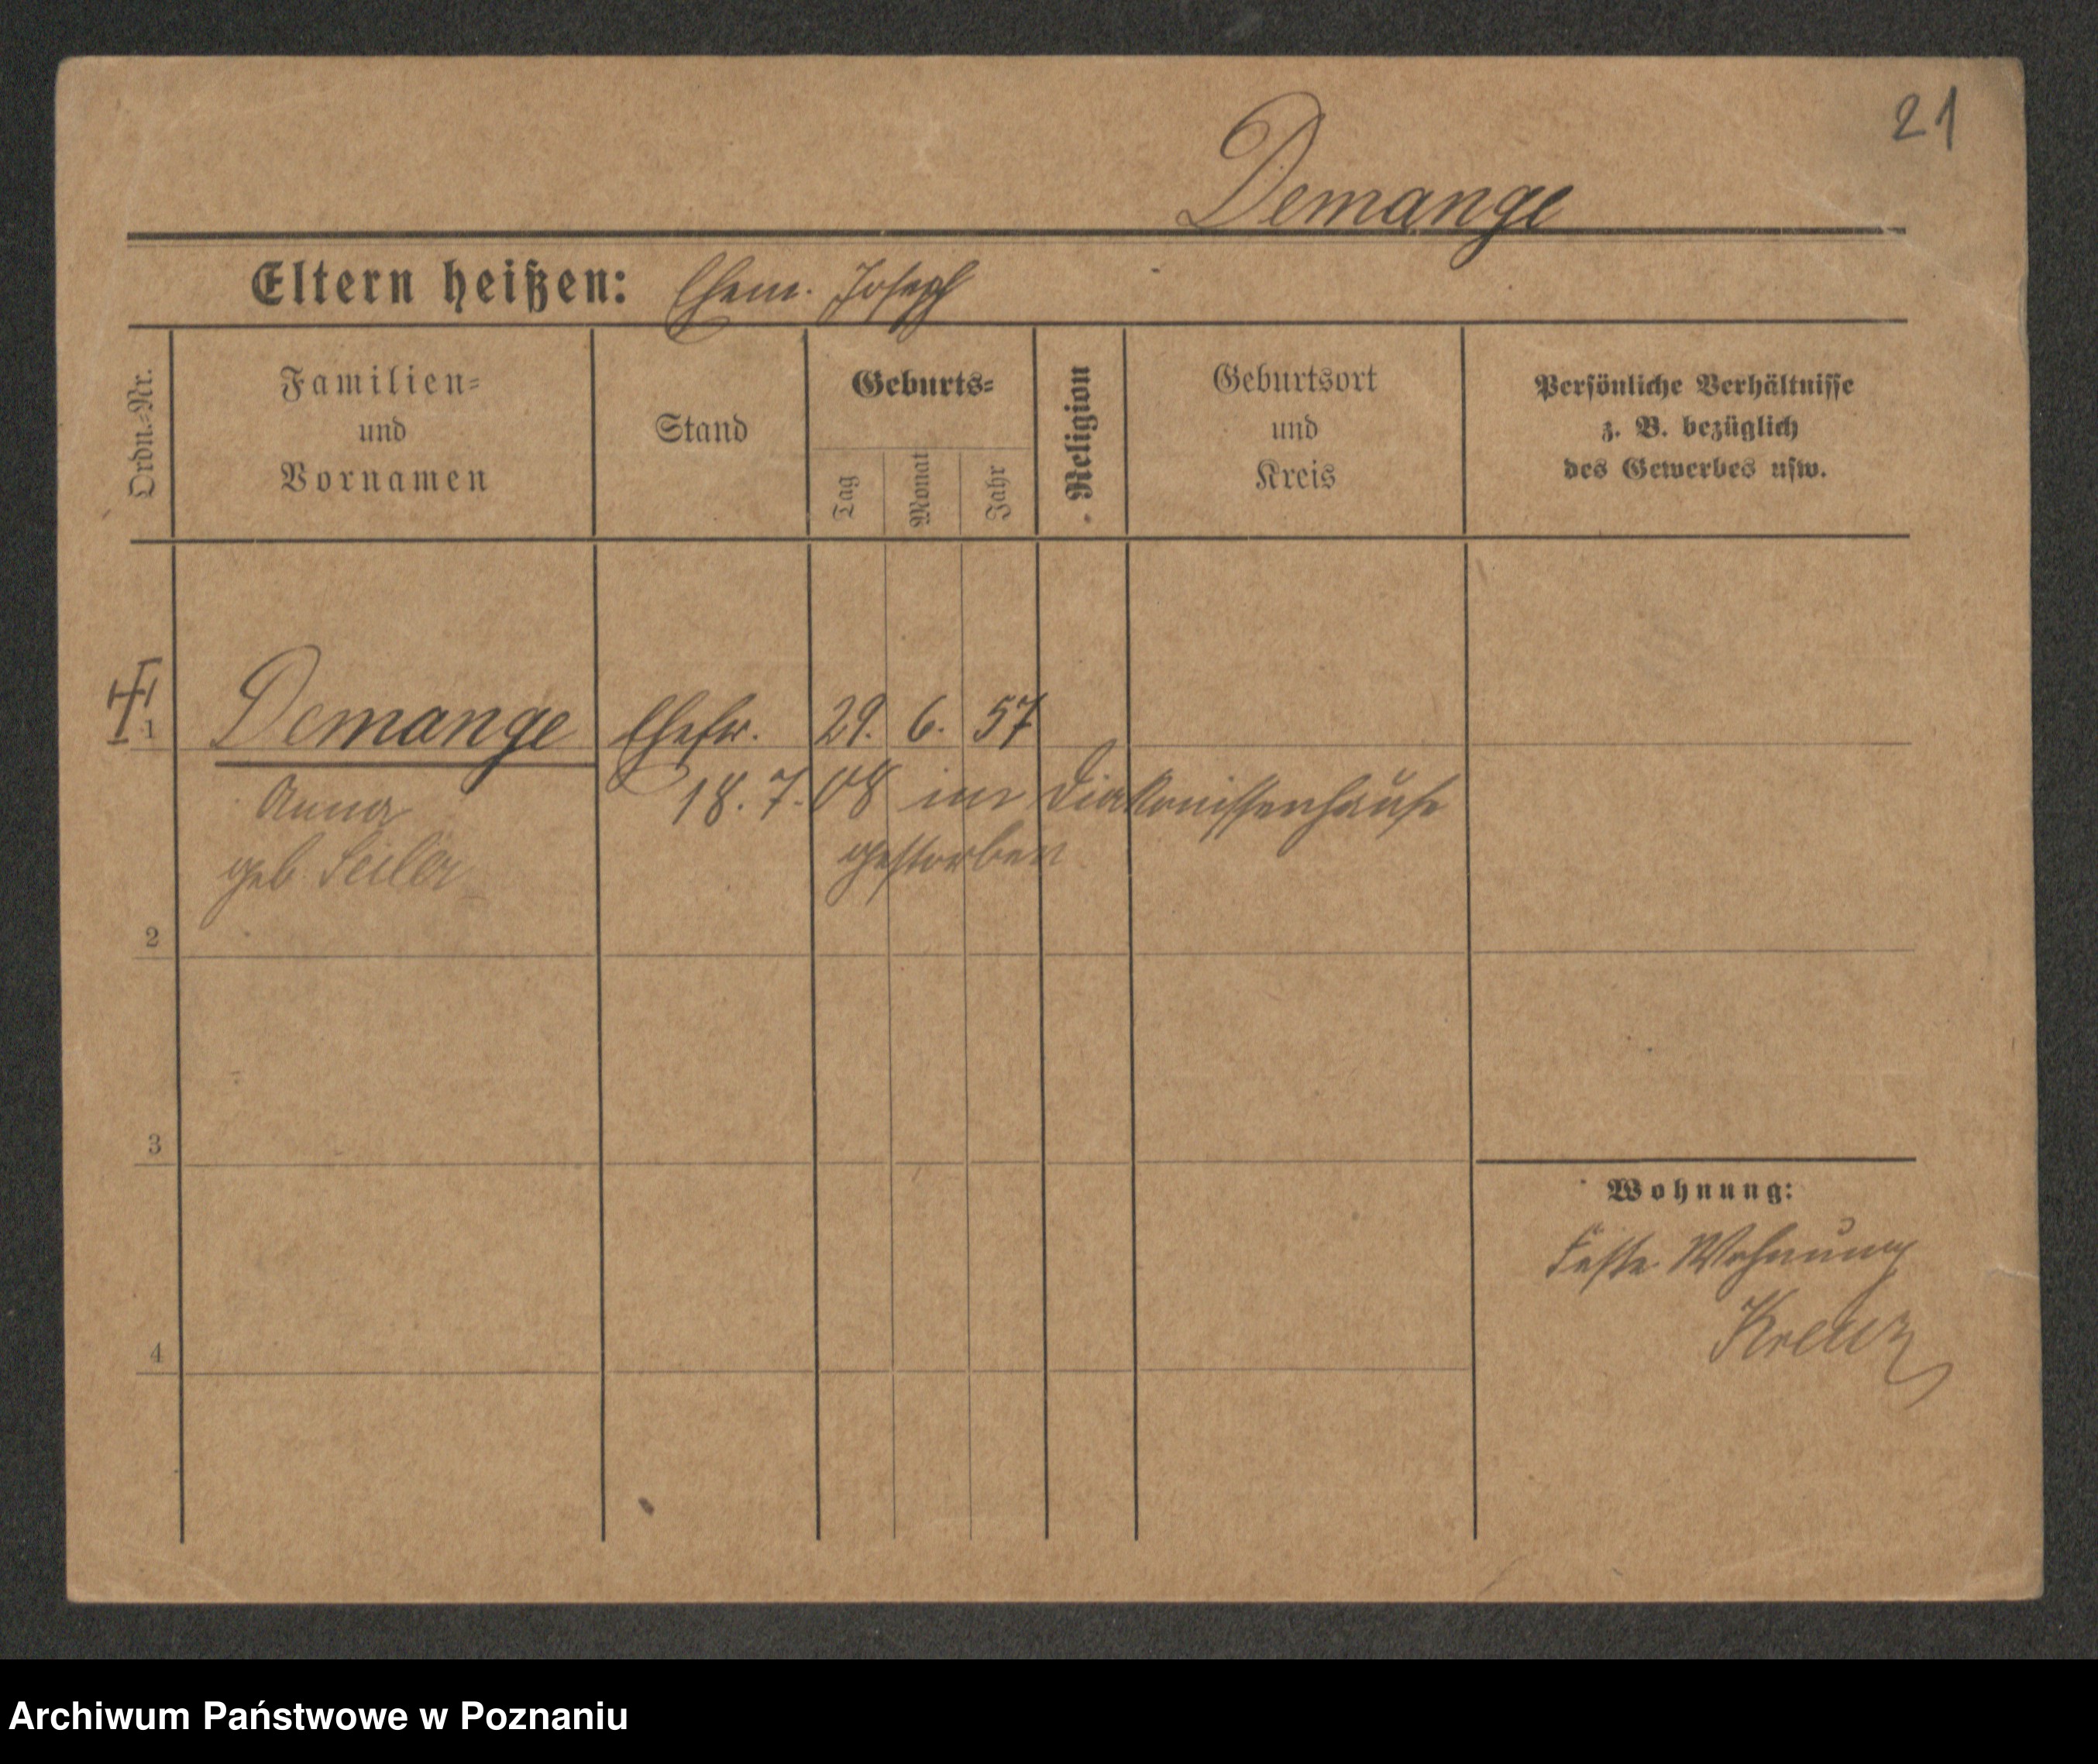 21
Demange
Eltern heißen: Ehem. Joseph
Ordn.-Nr.
Familien-
und
Vornamen
Stand
Geburts-
Tag
Monat
Jahr
Religion
Geburtsort
und
Kreis
Persönliche Verhältnisse
z. B. bezüglich
des Gewerbes usw.
1 Demange Ehefr. 29. 6. 57
Anna 18. 7. 08 im Diakonissenhause
geb. Seiler gestorben
2
3
4
Wohnung:
Feste Wohnung
Kreuz
Archiwum Państwowe w Poznaniu